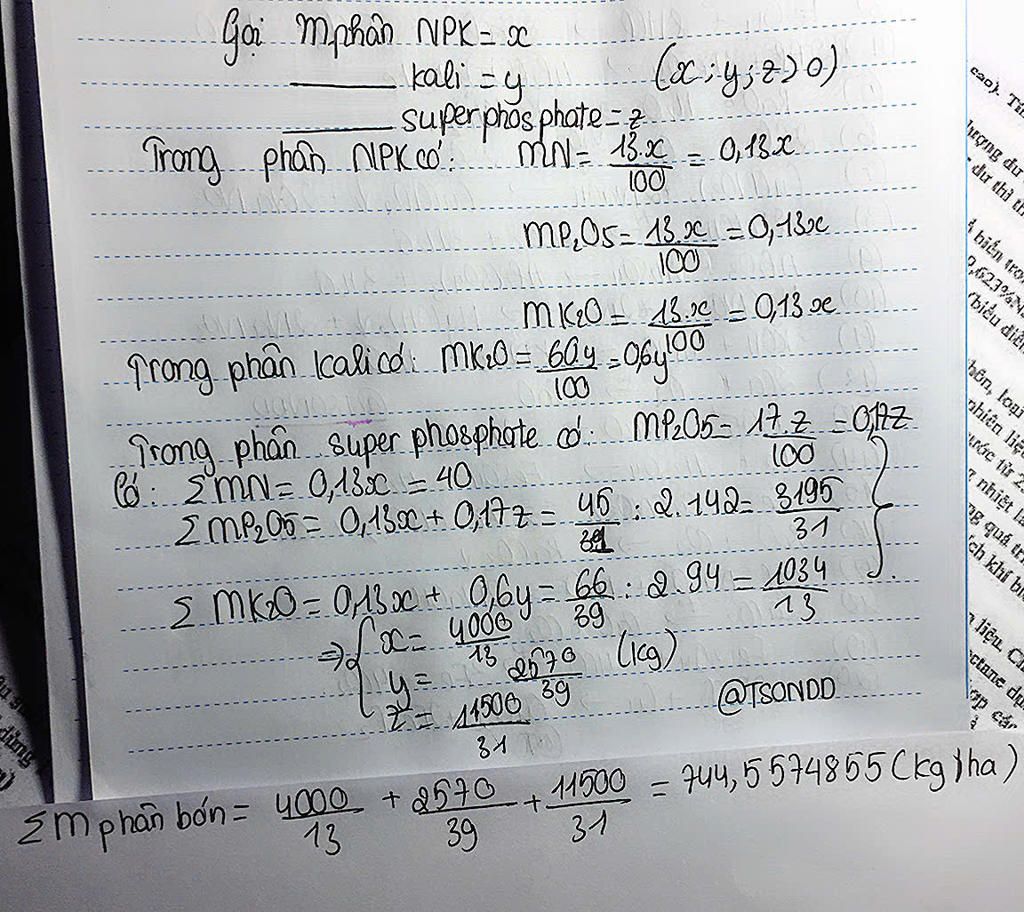 Gọi mphân NPK = x
______ kali = y (x; y; z > 0)
______ superphosphate = z
Trong phân NPK có: mN = 13.x/100 = 0,13x
mP2O5 = 13.x/100 = 0,13x
mK2O = 13.x/100 = 0,13x
Trong phân kali có: mK2O = 60y/100 = 0,6y
Trong phân super phosphate có: mP2O5 = 17.z/100 = 0,17z
Có: ΣmN = 0,13x = 40
ΣmP2O5 = 0,13x + 0,17z = 45/31 : 2.142 = 3195/31
ΣmK2O = 0,13x + 0,6y = 66/39 : 2.94 = 1034/13
⇒ { x = 4000/13
y = 2570/39 (kg)
z = 11500/31
@TSONDD
Σm phân bón = 4000/13 + 2570/39 + 11500/31 = 744,5574855 (kg/ha)
cao). Tín
lượng dư
dư thì th
biến tro
9,623%N
(biểu diễ
loại
nhiên liệu
nhiệt là
ng quá tr
ích khí bi
liệu. C
octane d